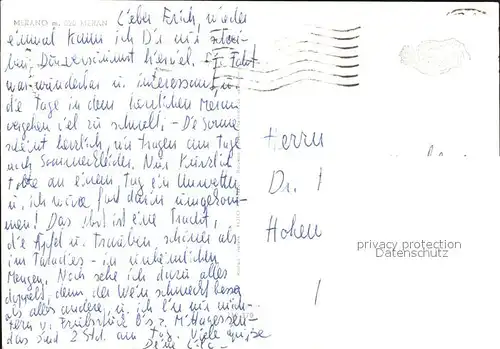 MERANO m. 320 MERAN
Lieber Erich, wieder
einmal kann ich Dir nur schrei-
ben, Du versäumst hier viel. Die Fahrt
war wunderbar u. interessant, u
die Tage in dem herrlichen Meran
vergehen viel zu schnell. - Die Sonne
scheint herrlich, wir tragen am Tage
noch Sommerkleider. Nur kürzlich
tobte an einem Tag ein Unwetter
u. ich wäre fast darin umgekom-
men! Das Obst ist eine Pracht,
die Äpfel u. Trauben, schöner als
im Paradies - in unheimlichen
Mengen. Noch sehe ich dazu alles
doppelt, denn der Wein schmeckt besser
als alles andere, u. ich bin nur
v. Frühstück bis z. Mittagessen
das sind 2 Std. am Tag. Viele Grüße
Deine
Herrn
Dr.
Hohen
privacy protection
Datenschutz